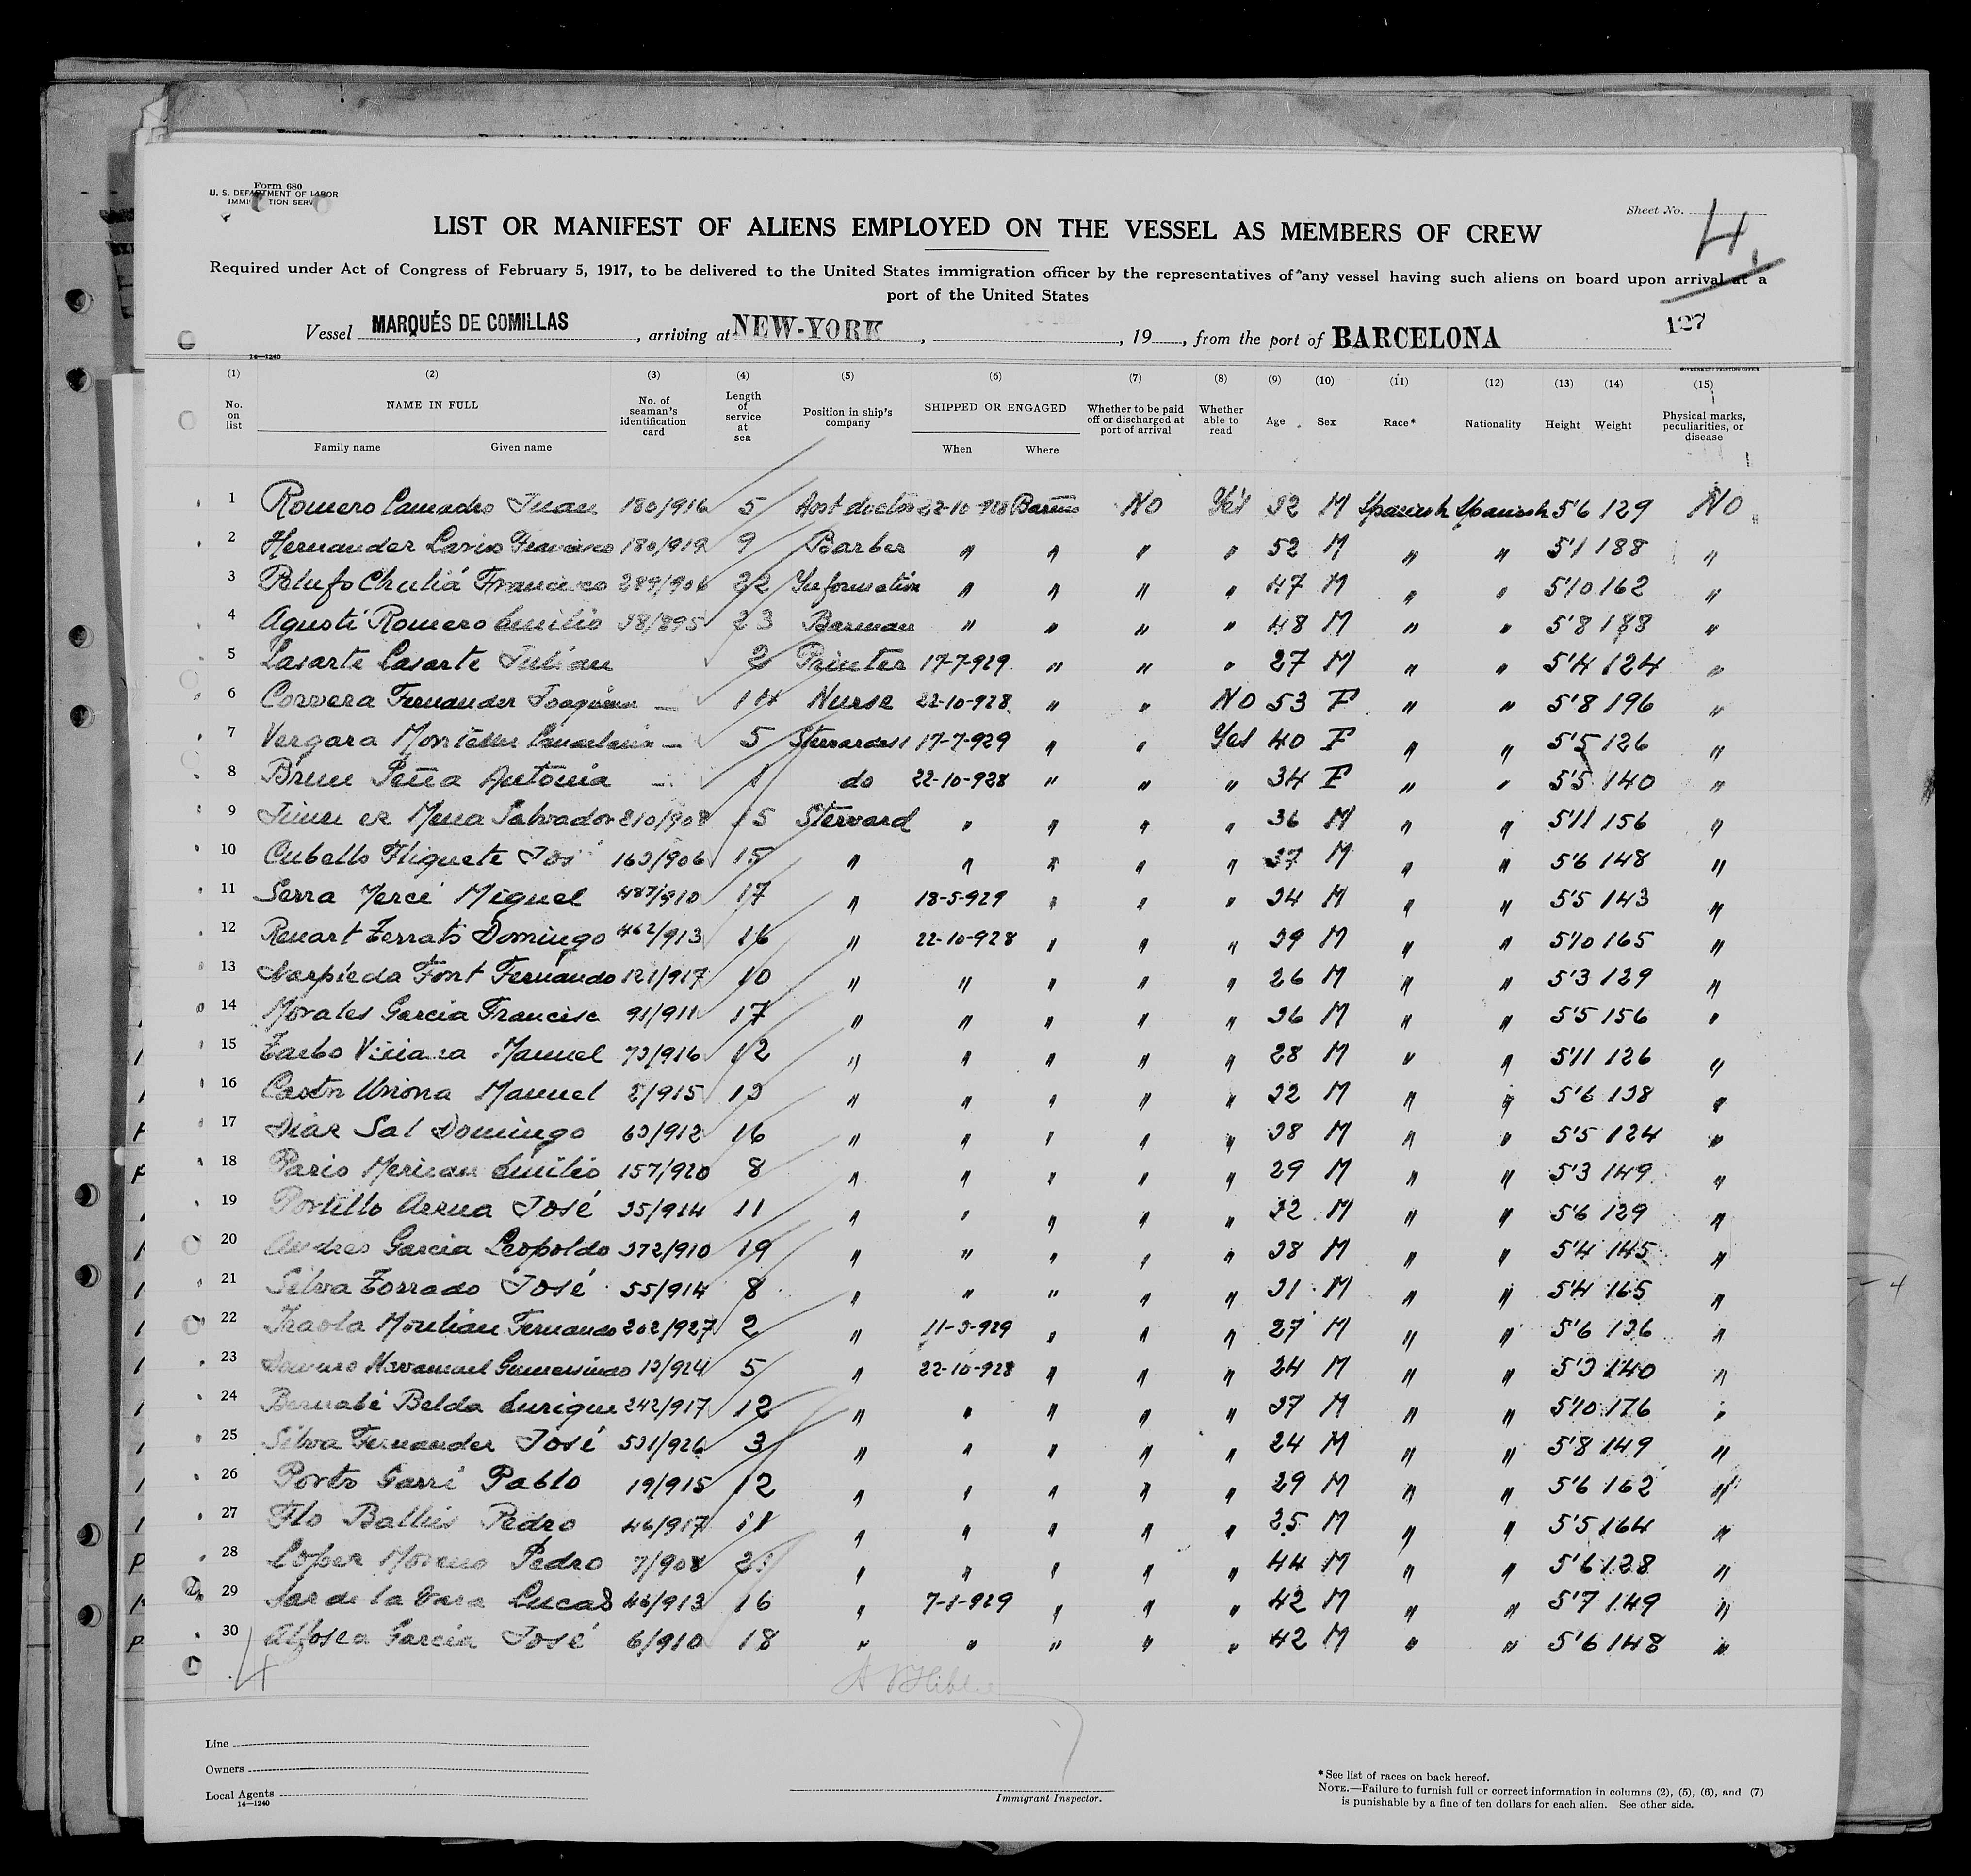 Form 680
U. S. DEPARTMENT OF LABOR
IMMIGRATION SERVICE
Sheet No. 4
LIST OR MANIFEST OF ALIENS EMPLOYED ON THE VESSEL AS MEMBERS OF CREW
Required under Act of Congress of February 5, 1917, to be delivered to the United States immigration officer by the representatives of any vessel having such aliens on board upon arrival at a
port of the United States
127
Vessel MARQUÉS DE COMILLAS, arriving at NEW-YORK, , 19 , from the port of BARCELONA
14—1240
(1) (2) (3) (4) (5) (6) (7) (8) (9) (10) (11) (12) (13) (14) (15)
No. on list NAME IN FULL Family name Given name No. of seaman's identification card Length of service at sea Position in ship's company SHIPPED OR ENGAGED When Where Whether to be paid off or discharged at port of arrival Whether able to read Age Sex Race* Nationality Height Weight Physical marks, peculiarities, or disease
1 Romero Juan 180/916 5 22-10-928 No Yes 32 M Spanish Spanish 5'6 129 No
2 Hernander Francisco 180/919 9 Barber " " " " 52 M " " 5'1 188 "
3 Chuliá Francisco 22 Information " " " " 47 M " " 5'10 162 "
4 Agusti Romero Emilio 38/895 23 Barman " " " " 48 M " " 5'8 188 "
5 Lasarte Lasarte Julian 2 Printer 17-7-929 " " " 27 M " " 5'4 124 "
6 Corvera Fernander Joaquina — 14 Nurse 22-10-928 " " No 53 F " " 5'8 196 "
7 Vergara — 5 Stewardess 17-7-929 " " Yes 40 F " " 5'5 126 "
8 Brun Peña Antonia — 1 do 22-10-928 " " " 34 F " " 5'5 140 "
9 Mena Salvador 210/908 15 Steward " " " " 36 M " " 5'11 156 "
10 Cubells José 163/906 15 " " " " " 37 M " " 5'6 148 "
11 Serra Mercé Miguel 487/910 17 " 18-5-929 " " " 34 M " " 5'5 143 "
12 Renart Domingo 462/913 16 " 22-10-928 " " " 39 M " " 5'10 165 "
13 Font Fernando 121/917 10 " " " " " 26 M " " 5'3 129 "
14 Morales Garcia Francisco 91/911 17 " " " " " 36 M " " 5'5 156 "
15 Manuel 73/916 12 " " " " " 28 M " " 5'11 126 "
16 Manuel 2/915 13 " " " " " 32 M " " 5'6 138 "
17 Diaz Sal Domingo 63/912 16 " " " " " 38 M " " 5'5 124 "
18 Emilio 157/920 8 " " " " " 29 M " " 5'3 149 "
19 Portillo José 35/914 11 " " " " " 32 M " " 5'6 129 "
20 Andres Garcia Leopoldo 372/910 19 " " " " " 38 M " " 5'4 145 "
21 Silva Zorrado José 55/914 8 " " " " " 31 M " " 5'4 165 "
22 Fernando 202/927 2 " 11-3-929 " " " 27 M " " 5'6 136 "
23 Gumersindo 13/924 5 " 22-10-928 " " " 24 M " " 5'3 140 "
24 Bernabé Belda Enrique 242/917 12 " " " " " 37 M " " 5'10 176 "
25 Silva Fernander José 531/926 3 " " " " " 24 M " " 5'8 149 "
26 Porto Garri Pablo 19/915 12 " " " " " 29 M " " 5'6 162 "
27 Flo Pedro 46/917 11 " " " " " 25 M " " 5'5 164 "
28 Loper Moreno Pedro 7/908 " " " " " 44 M " " 5'6 128 "
29 de la Lucas 46/913 16 " 7-1-929 " " " 42 M " " 5'7 149 "
30 Alfosea Garcia José 6/910 18 " " " " " 42 M " " 5'6 148 "
4
Line
Owners
Local Agents
14—1240
Immigrant Inspector.
*See list of races on back hereof.
NOTE.—Failure to furnish full or correct information in columns (2), (5), (6), and (7)
is punishable by a fine of ten dollars for each alien. See other side.